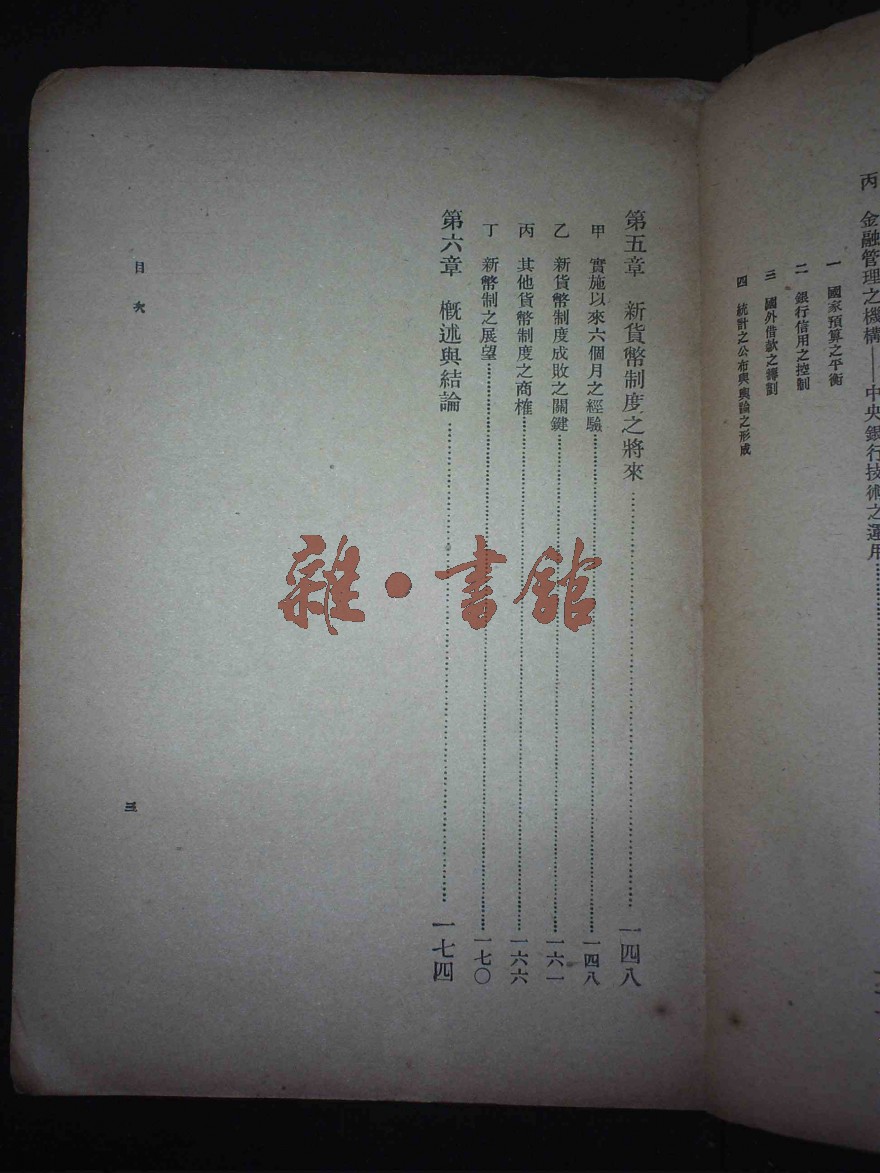 丙　金融管理之機構——中央銀行技術之運用
一　國家預算之平衡
二　銀行信用之控制
三　國外借款之籌劃
四　統計之公布與輿論之形成
第五章　新貨幣制度之將來……一四八
甲　實施以來六個月之經驗……一四八
乙　新貨幣制度成敗之關鍵……一六一
丙　其他貨幣制度之商榷……一六六
丁　新幣制之展望……一七〇
第六章　概述與結論……一七四
目次
三
雜·書館